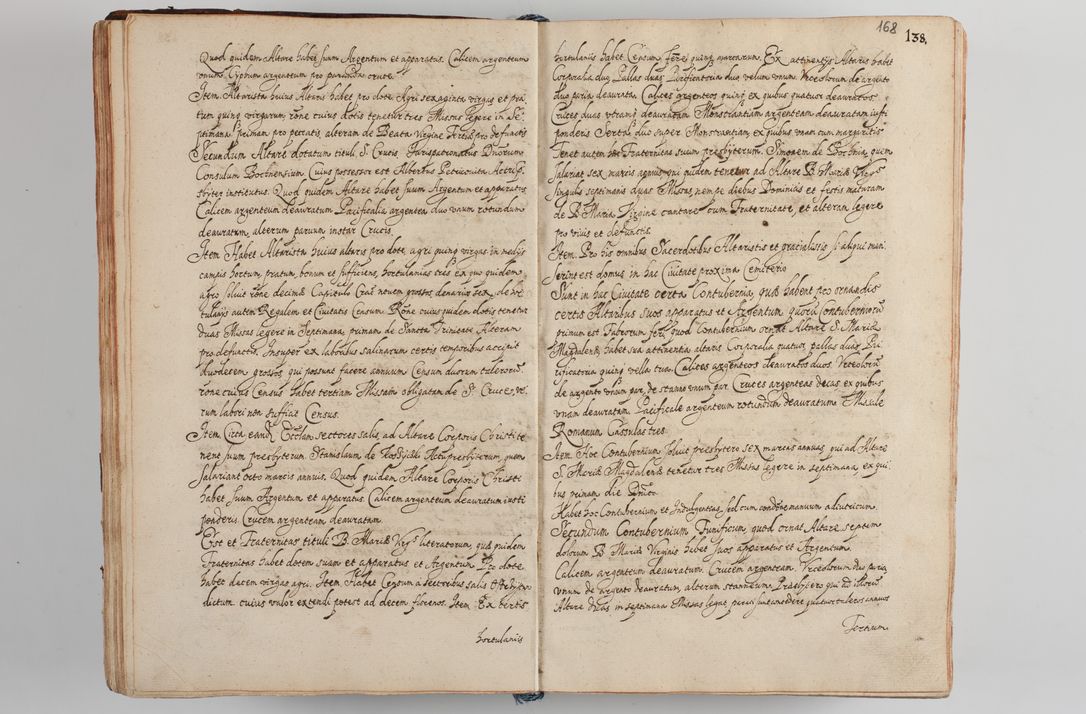 Quod quidem Altare habet suum Argentum et apparatus. Calicem argenteum
unum. Cyphum argenteum pro
Item. Altarista huius Altaris habet pro dote Agri sexaginta virgas et pra
tum quinq virgarum rone cuius dotis tenetur tres Missas legere in Se
ptimana. Primam pro peccatis, alteram de Beata Virgine Tertiã pro defunctis
Secundum Altare dotatum tituli S. Crucis. Jurispatronatus Dnorum
Consulum Bochnensium. Cuius possessor est Albertus
sbiter institutus. Quod quidem Altare habet suum Argentum et apparatus
Calicem argenteum deauratum Pacificalia argentea duo unum rotundum
deauratum, alterum paruum instar Crucis.
Item Habet Altarista huius altaris pro dote agri quinq virgas in
campis hortum, pratum, bonum et sufficiens, hortulanias tres ex quo quidem
agro soluit rone decimæ Capitulo Crac nouem grossos, denarios sex, de
autem Regalem et Ciuitatis Censum. Rone cuius quidem dotis tenetur
duas Missas legere in Septimana, primam de Sancta Trinitate Alteram
pro defunctis, Insuper ex laboribus salinarum certis temporibus accipit
duodecem grossos qui possunt facere annuum Censum duorum talerorũ
rone cuius Census habet tertiam Missam obligatam de S. Cruce, ve
rum labori non sufficit Census.
Item. Circa eand Ecclam sectores salis, ad Altare Corporis Christi te
nent suum presbyterum. Stanislaum de presbyterum, quem
salariant octo marcis annuis. Quod quidem Altare Corporis Christi
habet suum Argentum et apparatus Calicem argenteum deauratum iusti
ponderis Crucem argenteam deauratam.
Est et Fraternitas tituli B. Mariæ Virgs literatorum, quæ quidem
Fraternitas habet dotem suam et apparatus et Argentum. Pro dote
habet decem virgas agri. Item Habet Censum a sectoribus salis
dictum. cuius valor extendi potest ad decem florenos. Item Ex certis
hortulaniis
168
138.
hortulaniis habet Censum fere quinq marcarum. Ex attinentijs Altaris habet
Corporalia duo, Pallas duas Purificatoria duo, velum unum. Vrceolorum de argento
duo paria deaurata. Calices argenteos quinq ex quibus quatuor deauratos
Cruces duas vtramq deauratam Monstrantiam argenteam deauratam iusti
ponderis Serta duo super Monstrantiam, ex quibus unum cum margaritis
Tenet autem hæc Fraternitas suum presbyterum. Simonem de Bochnia, quem
salariat sex marcis annuis, qui quidem tenetur ad Altare B. Mariæ Virgs
singulis septimanis duas Missas, nempe diebus Dominicis et festis maturam
de B. Maria Virgine cantare cum Fraternitate, et alteram legere
pro viuis et defunctis.
Item. Pro his omnibus Sacerdotibus Altaristis et gracialistis si aliqui man
serint est domus in hac Ciuitate proxima Cemeterio
Sunt in hac Ciuitate certa Contubernia, quæ habent pro ornandis
certis Altaribus suos apparatus et Argentum, quorũ Contuberniorũ
primum est Fabrorum ferri quod Contubernium ornat Altare S. Mariæ
Magdalenæ, habet sua attinentia altaris Corporalia quatuor, pallas duas, Pu
rificatoria quinq vella tria. Calices argenteos deauratos duos. Vrceolorũ
de argento unum par, de stanno unum par Cruces argenteas duas, ex quibus
unam deauratam. Pacificale argenteum rotundum deauratum. Missale
Romanum Cassulas tres.
Item. Hoc Contubernium soluit presbytero sex marcas annuas, qui ad Altare
S. Mariæ Magdalenæ tenetur tres Missas legere in septimana, ex qui
bus primam die
Habet hoc Contubernium et Indulgentias, sed cum condne manuum adiutricum.
Secundum Contubernium, Funificum, quod ornat Altare septem
dolorum B. Mariæ Virginis habet suos apparatus et Argentum.
Calicem argenteum deauratum. Crucem argenteam. Vrceolorum duo paria,
unum de argento deauratum, alterum stanneum. Præsbytero qui ad illorũ
Altare duas in septimana Missas legit, quatuor taleros annuos
Tertium